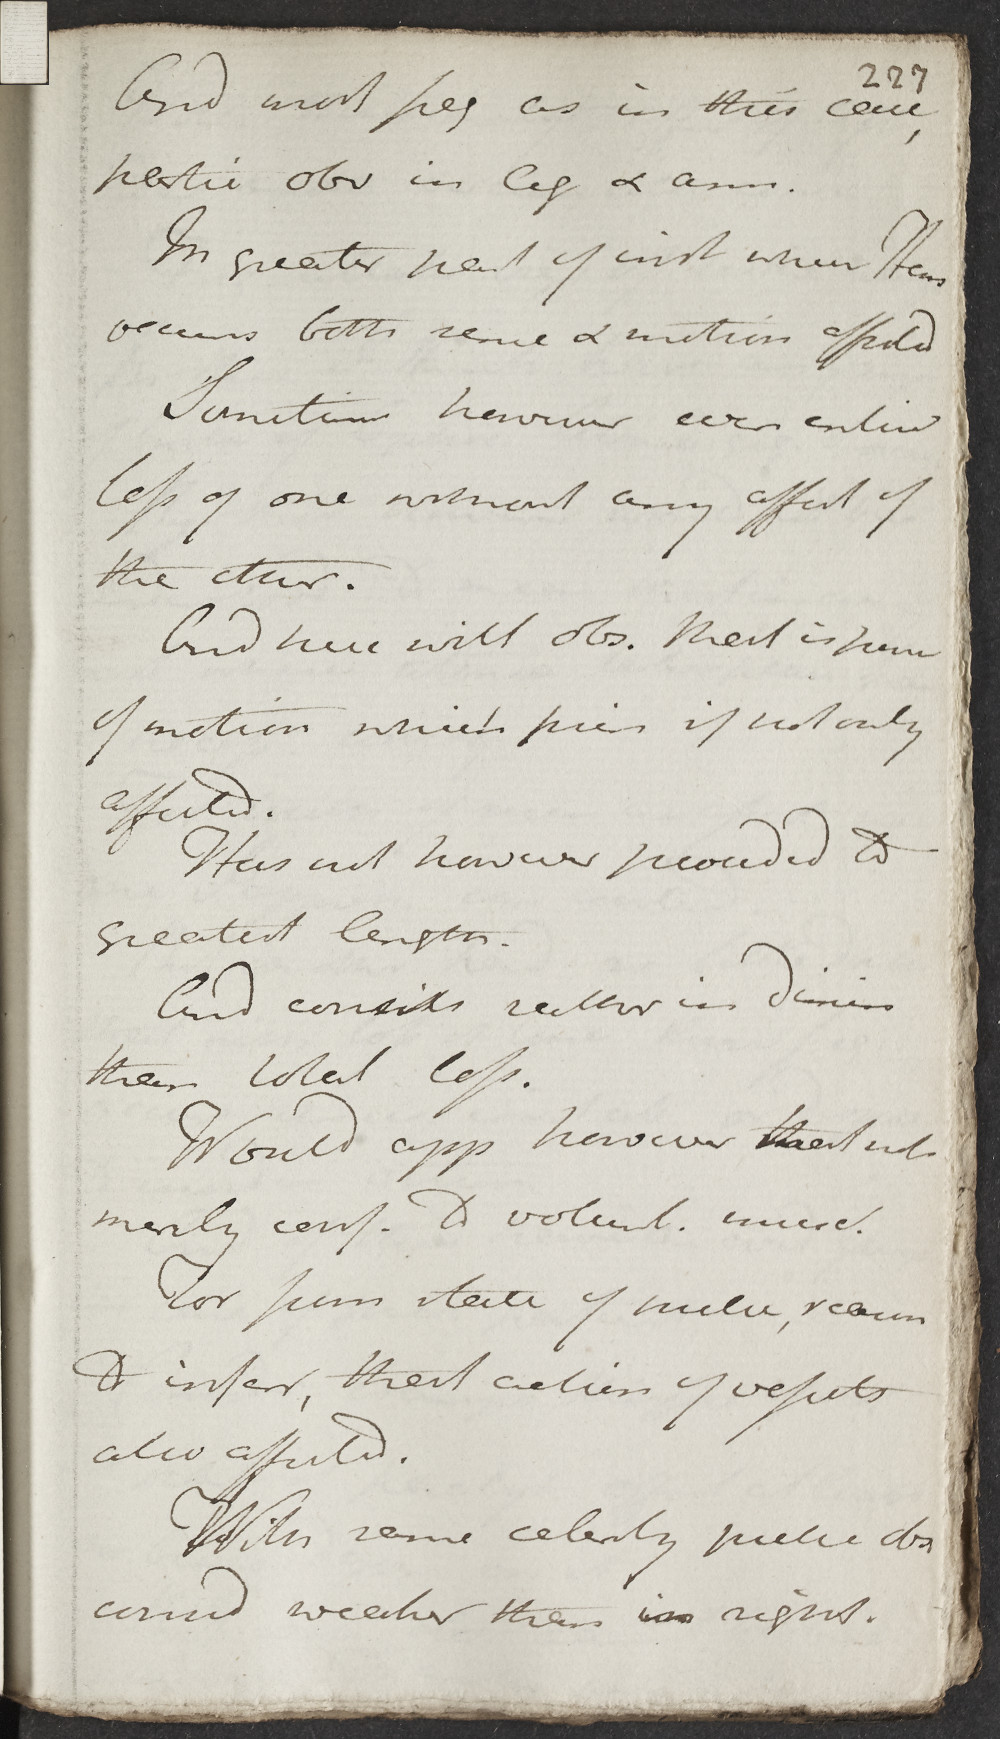 227
And most freq as in this case,
partic obs in leg & arm.
In greater part of inst when Hem
occurs both sense & motion affectd
Sometimes however even entire
loss of one without any affect of
the other.
And here will obs. that is power
of motion which prin if not only
affected.
Has not however proceeded to
greatest length.
And consists rather in dimin
than total loss.
Would app however that not
merely conf. to volunt. musc.
For from state of pulse, reason
to infer, that action of vessels
also affected.
With same celerity pulse obs
considd weaker than in right.